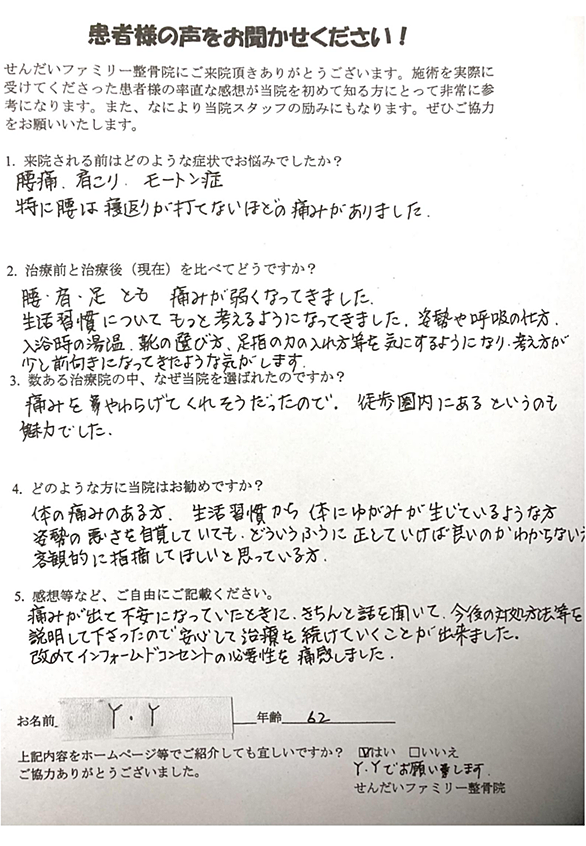 患者様の声をお聞かせください！
せんだいファミリー整骨院にご来院頂きありがとうございます。施術を実際に
受けてくださった患者様の率直な感想が当院を初めて知る方にとって非常に参
考になります。また、なにより当院スタッフの励みにもなります。ぜひご協力
をお願いいたします。
1. 来院される前はどのような症状でお悩みでしたか？
腰痛、肩こり、モートン症
特に腰は寝返りが打てないほどの痛みがありました。
2. 治療前と治療後（現在）を比べてどうですか？
腰・肩・足 とも 痛みが弱くなってきました。
生活習慣について もっと考えるようになってきました。姿勢や呼吸の仕方、
入浴時の湯温、靴の選び方、足指の力の入れ方等を気にするようになり、考え方が
少し前向きになってきたような気がします。
3. 数ある治療院の中、なぜ当院を選ばれたのですか？
痛みをやわらげてくれそうだったので。徒歩圏内にあるというのも
魅力でした。
4. どのような方に当院はお勧めですか？
体の痛みのある方、生活習慣から体にゆがみが生じているような方
姿勢の悪さを自覚していても、どういうふうに正していけば良いのかわからない方
客観的に指摘してほしいと思っている方。
5. 感想等など、ご自由にご記載ください。
痛みが出て不安になっていたときに、きちんと話を聞いて、今後の対処方法等を
説明して下さったので安心して治療を続けていくことが出来ました。
改めてインフォームドコンセントの必要性を痛感しました。
お名前 Y・Y 年齢 62
上記内容をホームページ等でご紹介しても宜しいですか？ ☑はい □いいえ
ご協力ありがとうございました。 Y.Yでお願い致します。
せんだいファミリー整骨院